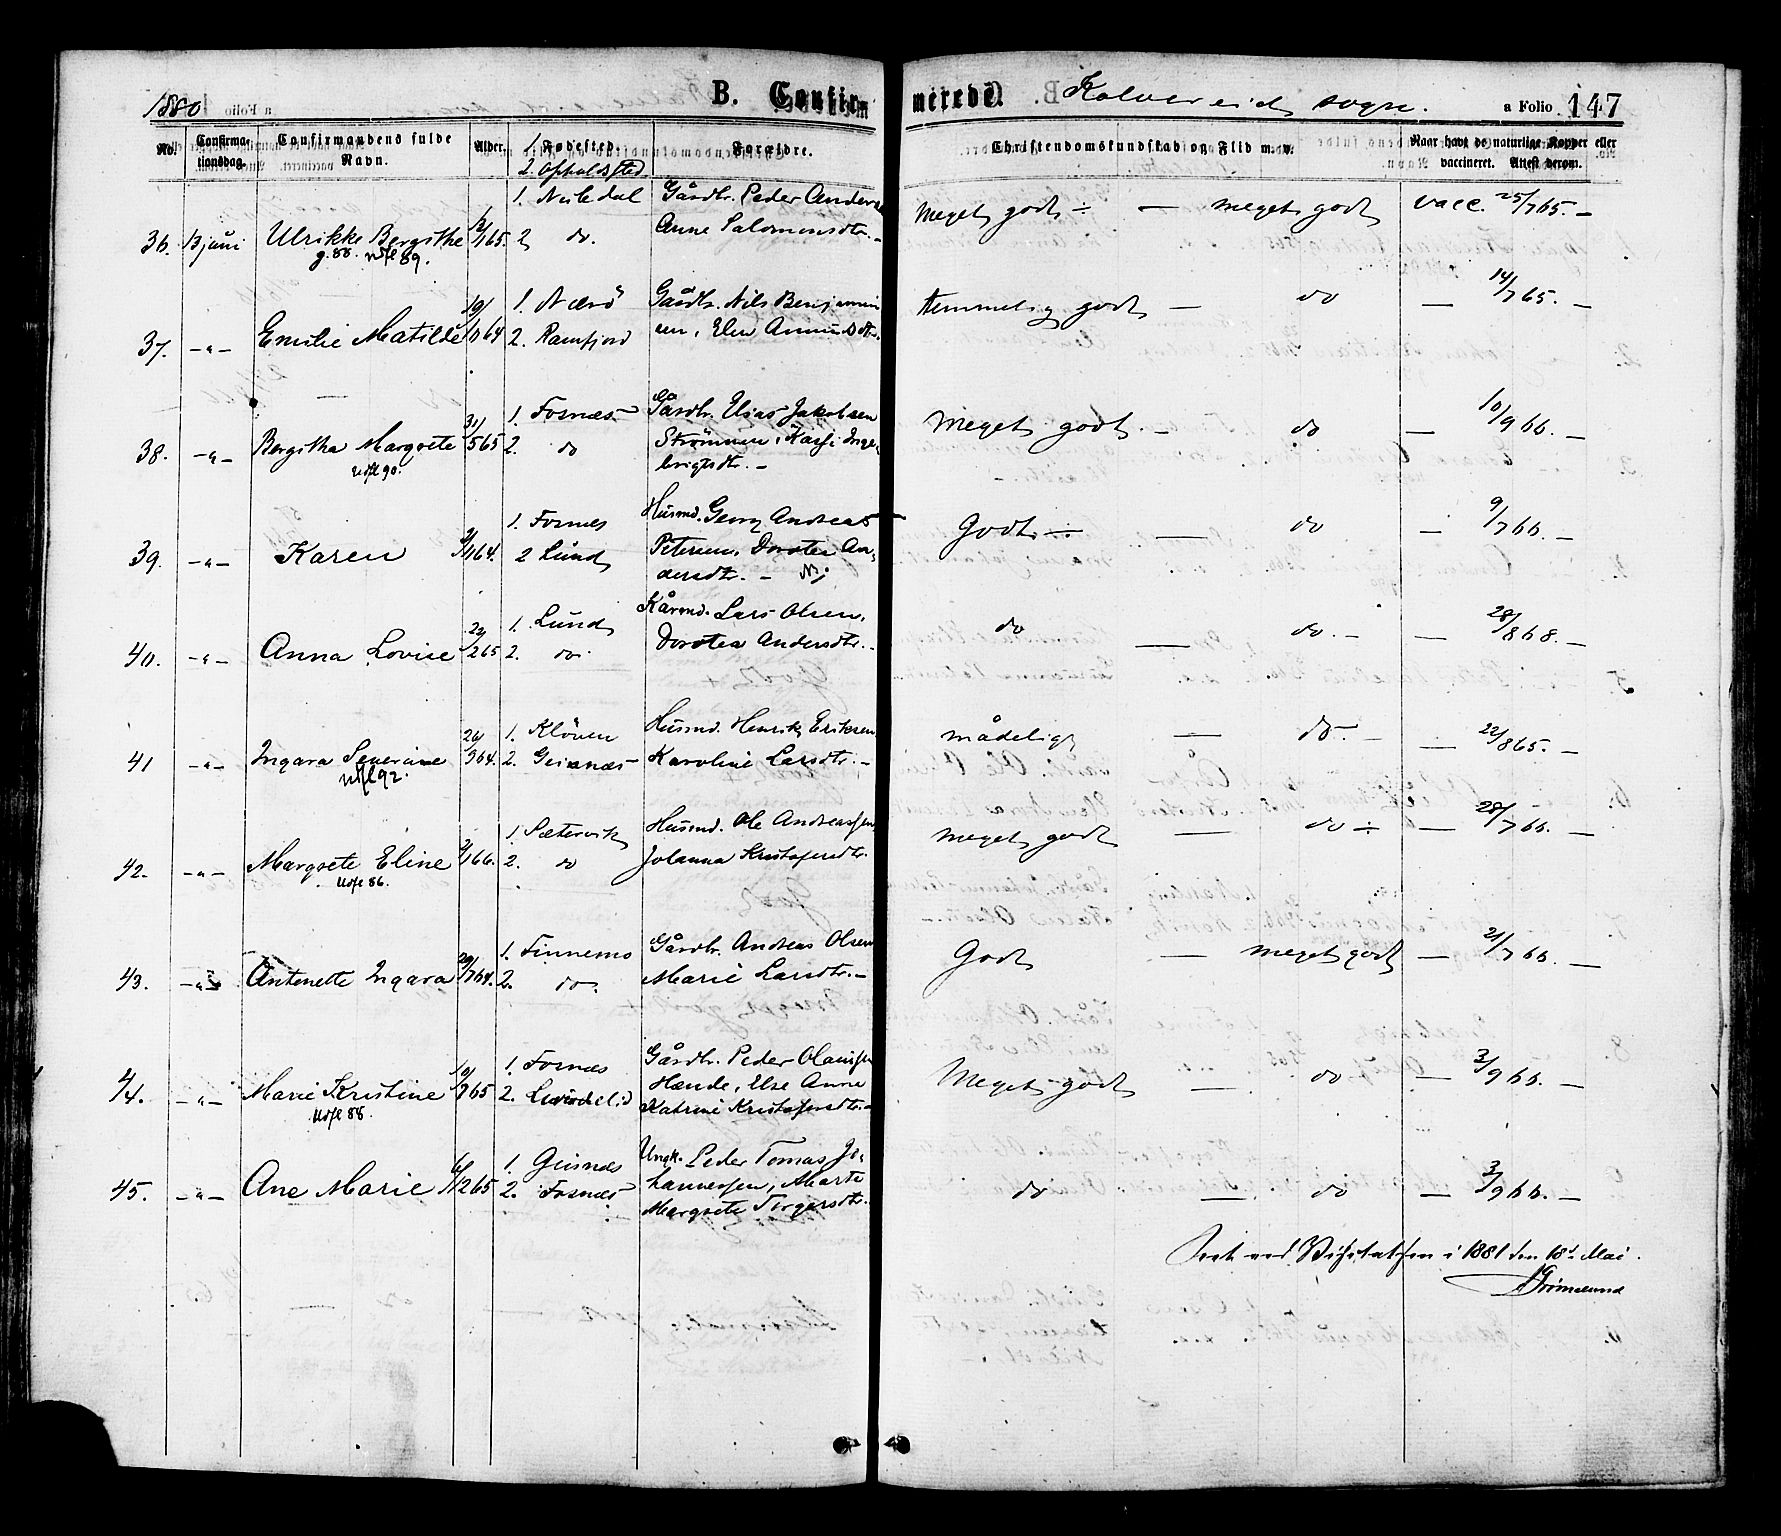 1880
B. Confirmerede. Kolvereid sogn. a Folio 147
No. Confirmationsdag. Confirmandens fulde Navn. Alder. 1. Fødested. 2. Opholdssted Forældre. Christendomskundskab og Flid m. v. Naar havt de naturlige Kopper eller vaccineret. Attest derom.
1. Gårdbr. Peder Anders
Meget godt ÷ — meget godt vacc. 25/7 65. —
36. 13 juni Ulrikke Bergithe 65. 2. do. Anne Salomonsdtr. —
g. 88. udfl 89.
1. Nærö Gårdbr. Nils Benjamin
temmelig godt — do — 14/7 65. —
37. — " — Emilie Matilde 19/10 64 2. Ramfjord sen, Elen Amundsdtr.
1. Fosnæs Gårdbr. Elias Jakobsen
Meget godt. — do — 10/9 66. —
38. — " — Bergitha Margrete 31/5 65 2. do Strömmen, Inge-
udfl 90. brigtsdtr. —
1. Fosnes Husmd. Georg Andreas
Godt ÷ — do — 9/7 66. —
39. — " — Karen 64. 2 Lund Petersen, Dorotea An-
dersdtr. —
1. Lund Kårmd. Lars Olsen,
do do. — — 28/8 68. —
40. — " — Anna Lovise 22/2 65 2. do. Dorotea Andersdtr. —
1. Klöven Husmd. Henrik Eriksen
mådelig — do — — 22/8 65. —
41 — " — Ingara Severine 9 64. 2. Geisnæs — Karoline Larsdtr. —
udfl 92.
1. Sætervik Husmd. Ole Andreassen
Meget godt — do ÷ — 28/7 66. —
42. — " — Margrete Eline 66. 2. do Johanna Kristofersdtr.
Udfl 86.
1. Finnemo Gårdbr. Andreas Olsen
Godt — meget godt — 21/7 66. —
43. — " — Antonette Ingara 29/7 64. 2. do. Marie Larsdtr. —
1. Fosnes Gårdbr. Peder Olaussen
Meget godt — do — 3/9 66. —
44. — " — Marie Kristine 65 2. Hænde, Else Anna
Udfl 88. Katrine Kristofersdtr. —
1. Geisnæs Ungk. Peder Tomas Jo-
45. — " — Ane Marie 2 65 2. Fosnæs hannessen, Marte
do — do — 3/9 66. —
Margrete Torgersdtr.
Seet ved Visitatsen i 1881 den 18de Mai.